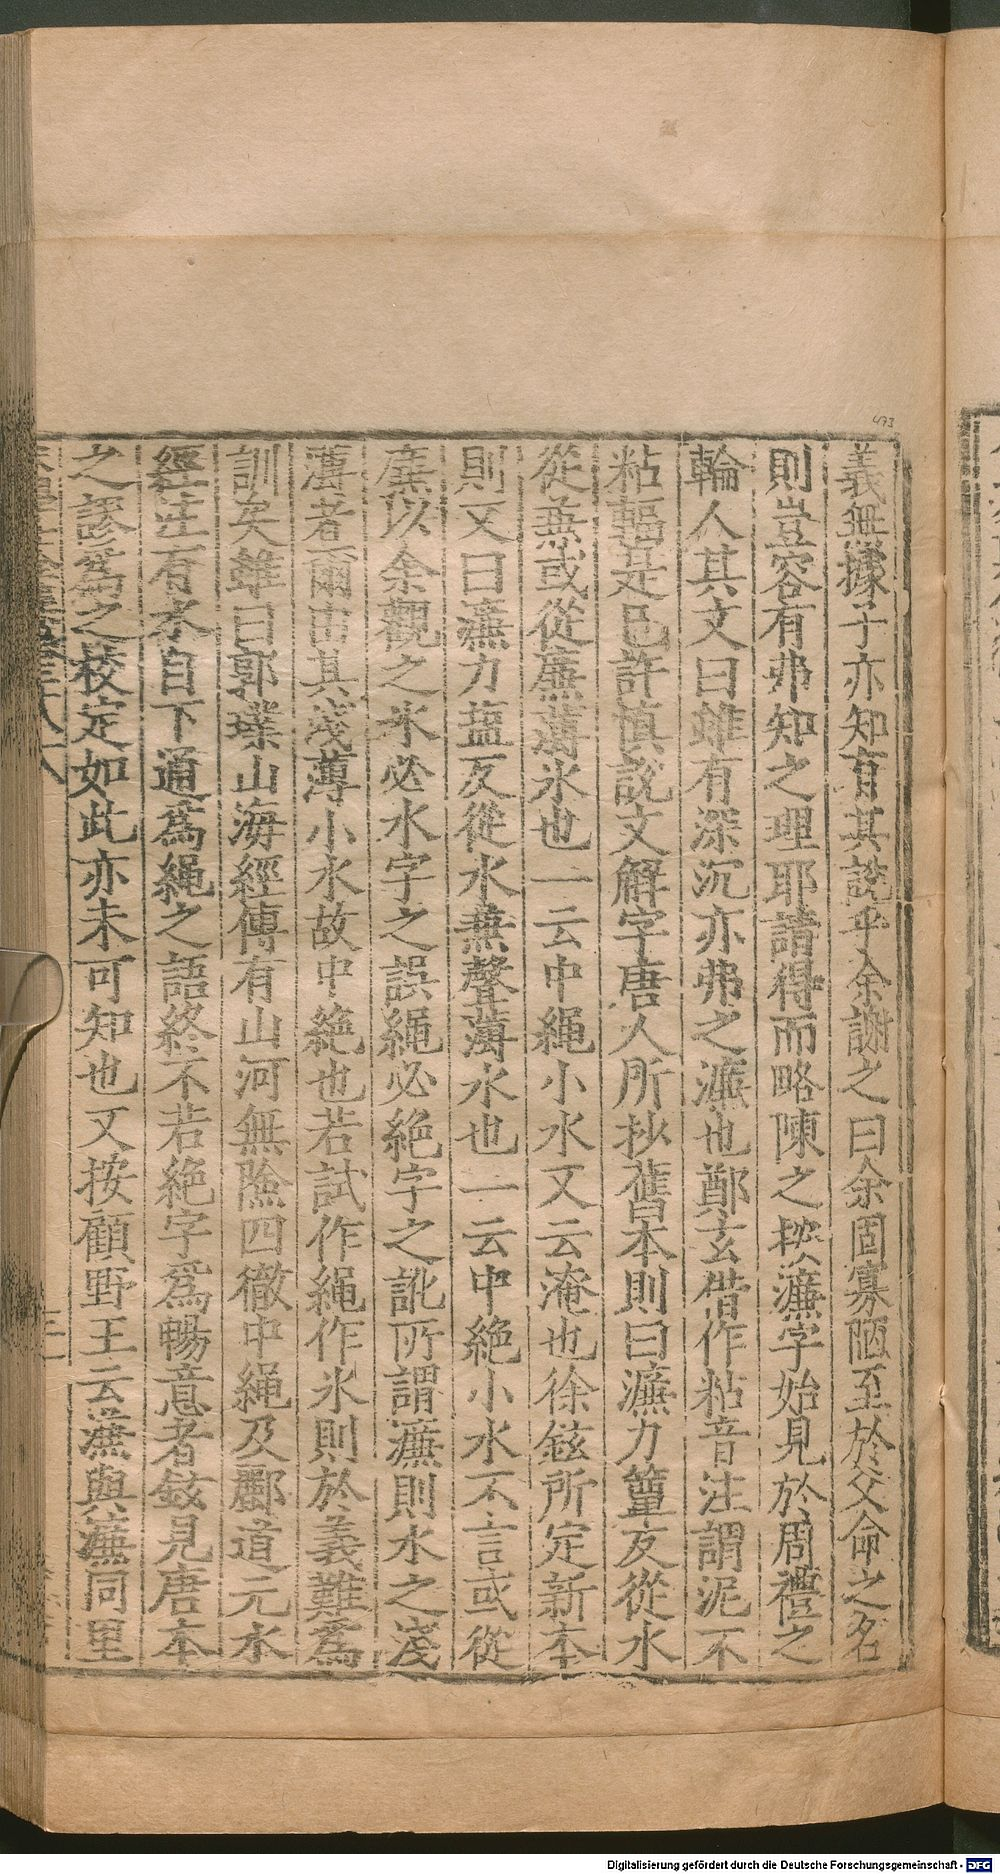 473
義無據子亦知有其說乎余謝之曰余固寡陋至於父命之名
則豈容有弗知之理耶請得而略陳之按濂字始見於周禮之
輪人其文曰雖有深沉亦弗之濂也鄭玄借作粘音注謂泥不
粘輻是已許慎說文解字唐人所抄舊本則曰濂力簟反從水
從兼或從廉薄氷也一云中繩小水又云淹也徐鉉所定新本
則又曰濂力鹽反從水兼聲薄水也一云中絶小水不言或從
廉以余觀之氷必水字之誤繩必絶字之訛所謂濂則水之淺
薄者爾由其淺薄小水故中絶也若試作繩作氷則於義難爲
訓矣雖曰郭璞山海經傳有山河無險四徹中繩及酈道元水
經注有水自下通爲繩之語終不若絶字爲暢意者鉉見唐本
之謬爲之校定如此亦未可知也又按顧野王云濂與溓同里
Digitalisierung gefördert durch die Deutsche Forschungsgemeinschaft - DFG